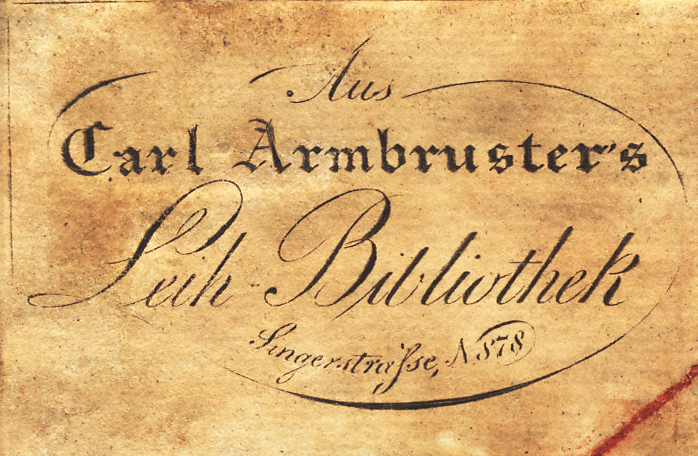 Aus
Carl Armbruster's
Leih-Bibliothek
Singerstraſse, N. 878